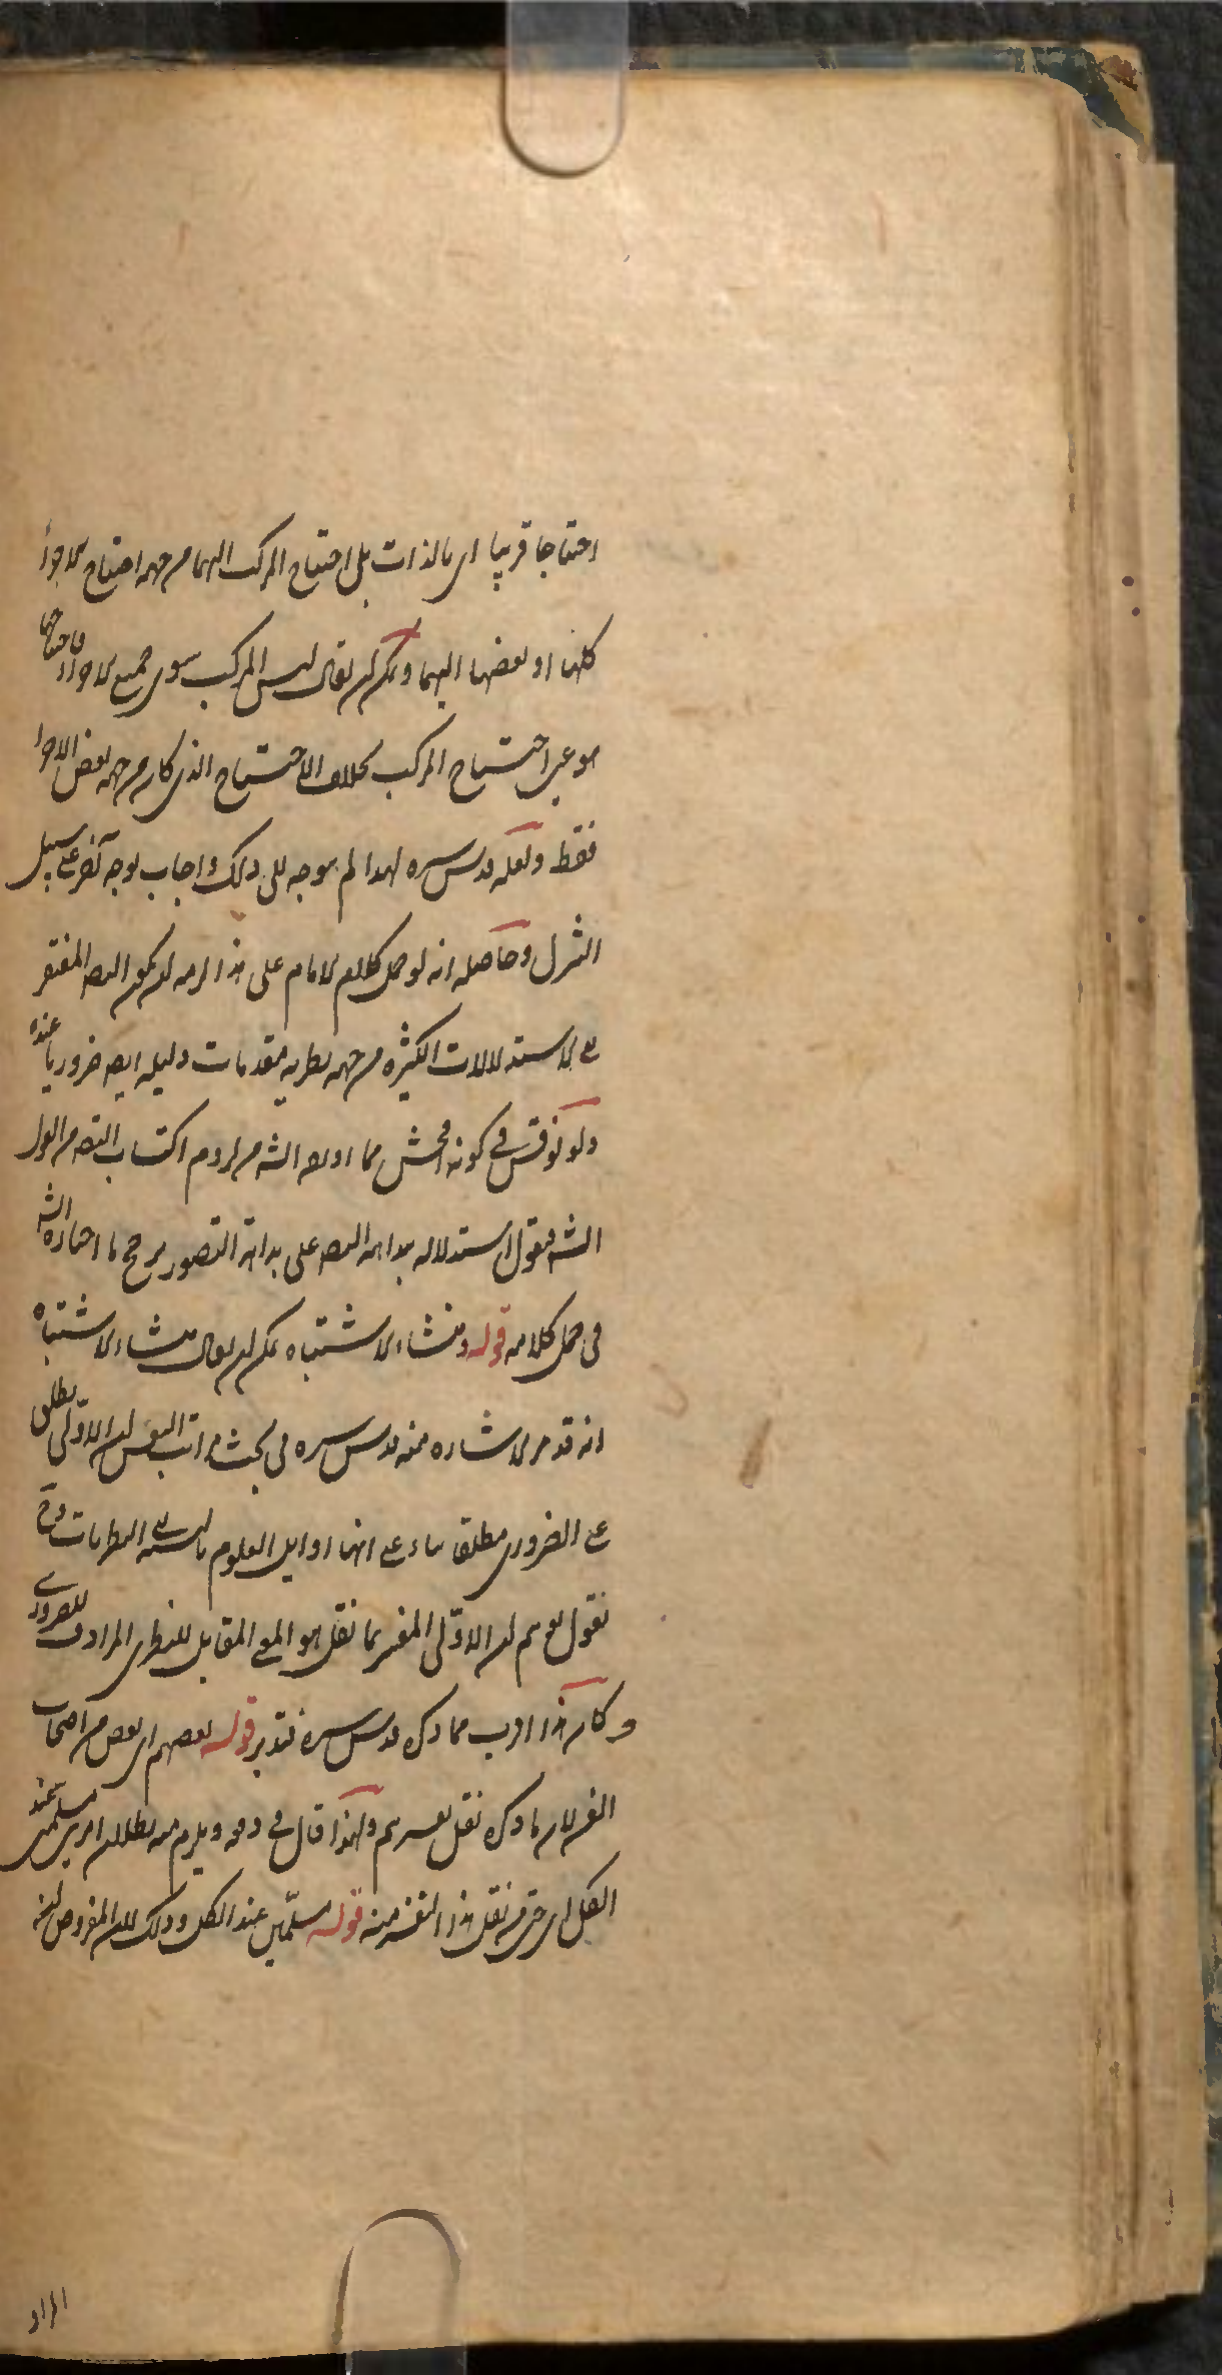 احتياجا قريبا اى بالذات بل احتياج المركب اليهما من جهة احتياج الاجزاء
كلها او بعضها اليهما ويمكن ان يقال ليس المركب سوى جميع الاجزاء فاحتياجها
هو عين احتياج المركب بخلاف الاحتياج الذى كان من جهة بعض الاجزاء
فقط ولعله قدس سره لهذا لم يتوجه الى ذلك واجاب بوجه آخر على سبيل
التنزل وحاصله انه لو حمل كلام الامام على هذا لزمه ان يكون التصـ المفتقر
الى الاستدلالات الكثيرة من جهة نظرية مقدمات دليله ايضـ ضروريا عنده
ولو نوقش فى كونه افحش مما اورده الشـ من لزوم اكتساب التصـ من القول
الشـ فنقول استدلاله ببداهة التصـ على بداهة التصور يرجح ما اختاره الشـ
فى حمل كلامه قوله ومنشاء الاشتباه يمكن ان يقال منشاء الاشتباه
انه قد مر الاشارة منه قدس سره فى بحث مراتب النفس ان الاولى يطلق
على الضرورى مطلقا بناء على انها اوايل العلوم بالنسبة الى النظريات وح
نقول توهم ان الاولى المفسر بما نقل هو المعنى المقابل للنظرى المرادف للضرورى
وكان هذا اقرب مما ذكره قدس سره فتدبر قوله بعضهم اى بعض من اصحاب
الفن لان ما ذكره نقل تفسيرهم ولهذا قال فى دفعه ويلزم منه بطلان امرين مسلمين عند
الكل اى حتى من نقل هذا التفسـ منه قوله مسلمين عند الكل وذلك لان المفروض انه
المراد